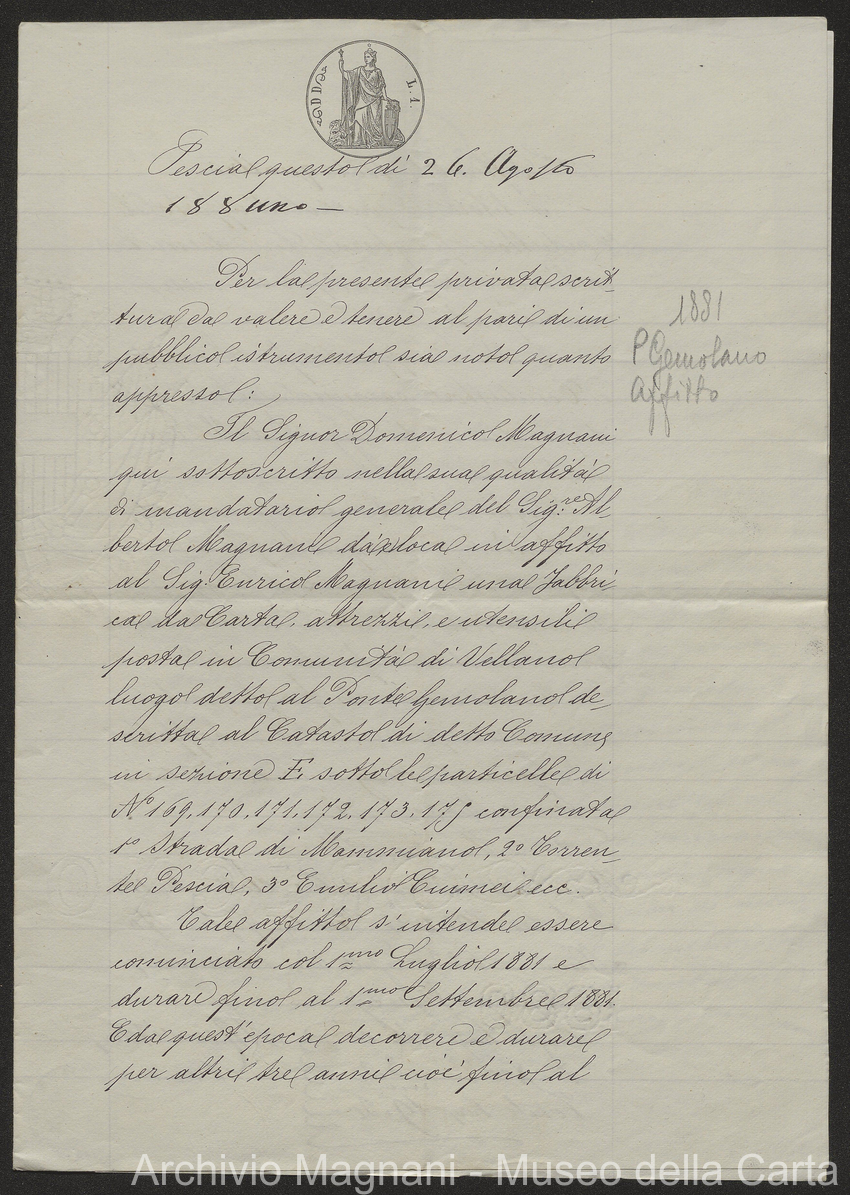 L. 1.
Pescia questo dì 26. Agosto
188uno —
Per la presente privata scrit-
tura da valere e tenere al pari di un
pubblico istrumento sia noto quanto
appresso:
Il Signor Domenico Magnani
qui sottoscritto nella sua qualità
di mandatario generale del Sig.re Al-
berto Magnani dà e loca in affitto
al Sig. Enrico Magnani una Fabbri-
ca da Carta, attrezzi, e utensili
posta in Comunità di Vellano
luogo detto al Ponte Gemolano de-
scritta al Catasto di detto Comune
in sezione F. sotto le particelle di
N.º 169, 170, 171, 172, 173, 175 confinata
1º Strada di Mammiano, 2º Torren-
te Pescia, 3º Emilio ecc.
Tale affitto s'intende essere
cominciato col 1mo Luglio 1881 e
durare fino al 1mo Settembre 1881.
E da quest'epoca decorrere e durare
per altri tre anni cioè fino al
1881
P Gemolano
Affitto
Archivio Magnani - Museo della Carta